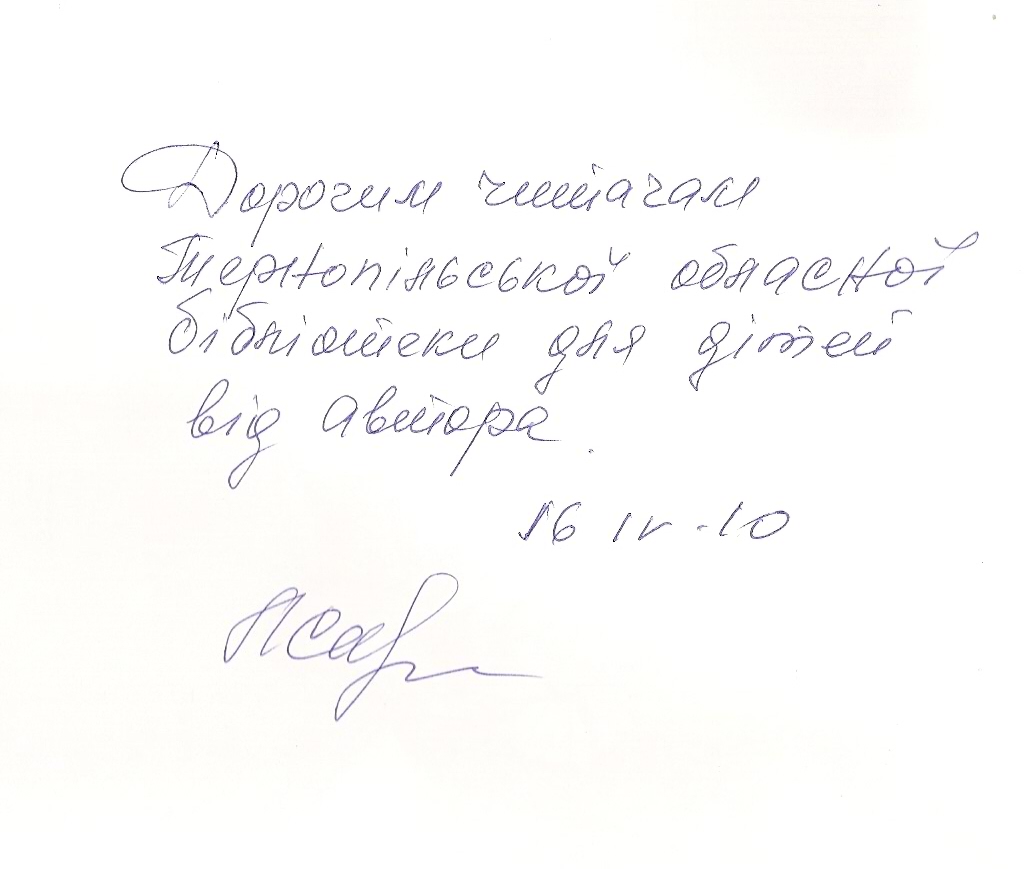 Дорогим читачам
Тернопільської обласної
бібліотеки для дітей
від автора.
16 IV -10